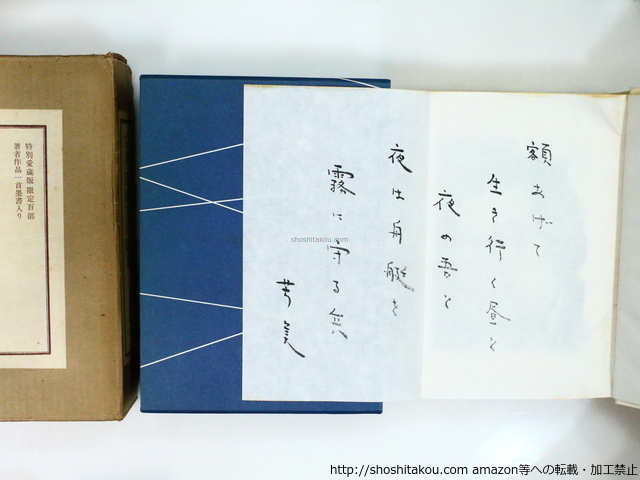 額あげて
生き行く昼と
夜の吾と
夜は舟艇を
霧に守る兵
芳美
特別愛蔵版 限定百部
著者作品一首墨書入り
shoshitakou.com
http://shoshitakou.com amazon等への転載・加工禁止